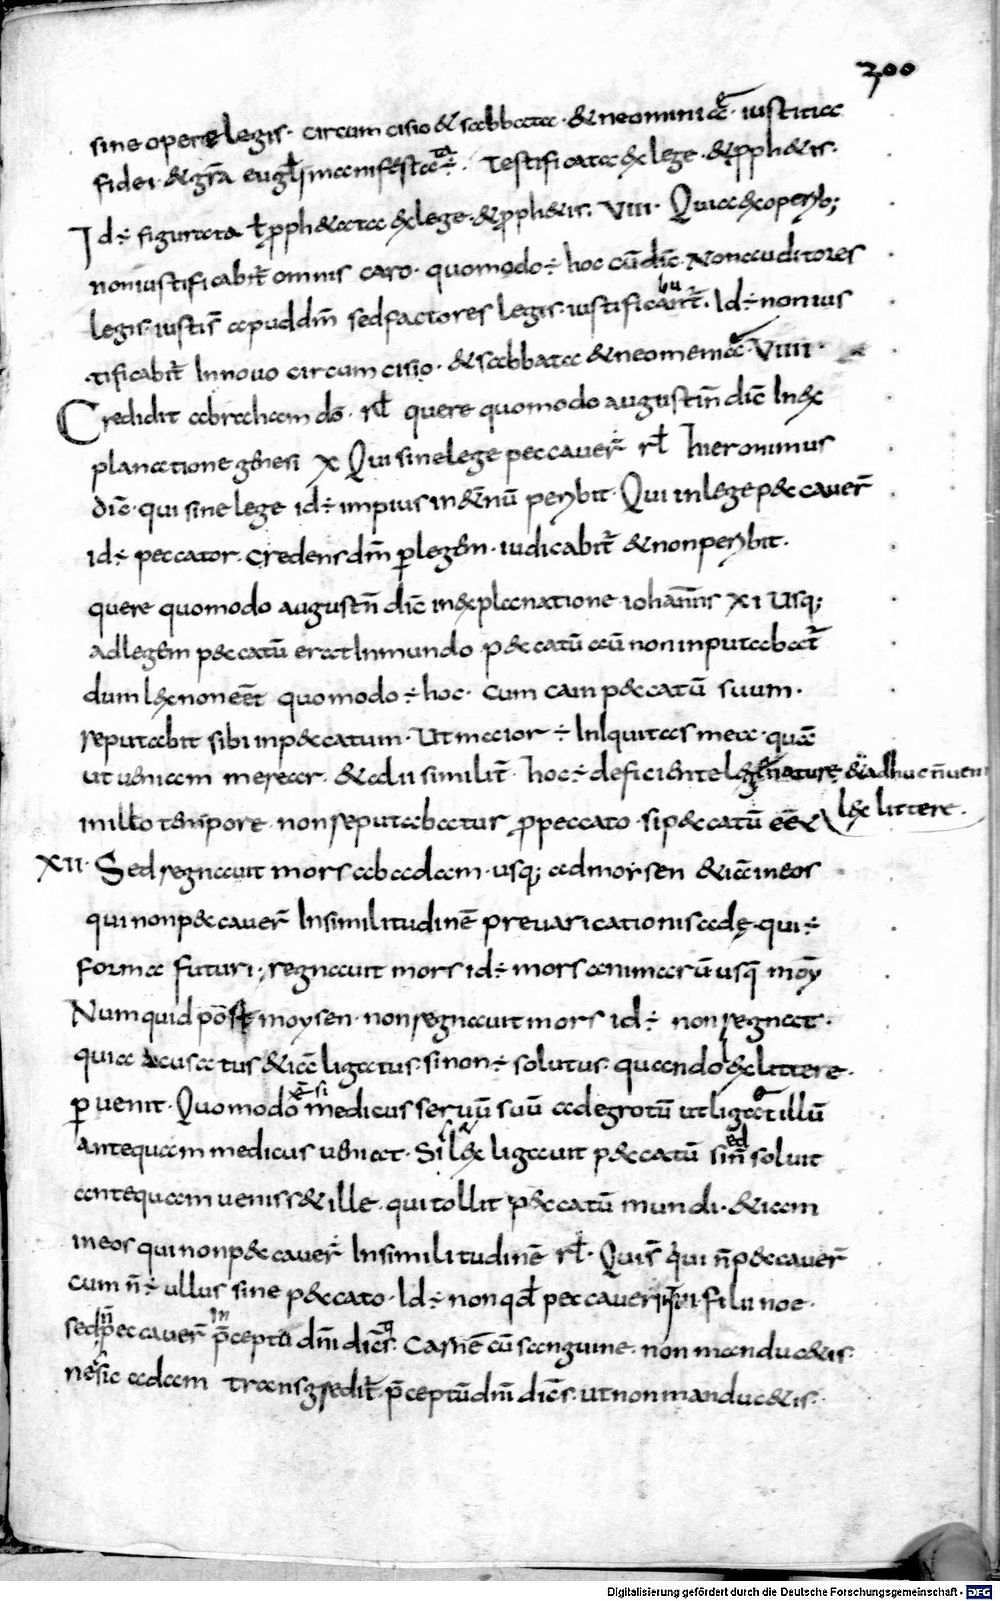 200
sine opere legis · circumcisio & sabbata · & neominia · iustitia
fidei · & gr̄a eugl̄i manifesta ÷ · Testificata ex lege · & pph&is ·
Id÷ figurata ł pph&ata ex lege · & pph&is · VIII · Quia ex operib;
non iustificabit̄ omnis caro · quomodo ÷ hoc cū dic̄ · Non auditores
legis · iusti s̄ apud dm̄ sed factores legis · iustificabunt̄ · Id÷ non ius
tificabit̄ In novo circumcisio · & sabbata & neomenia · VIIII ·
Credidit abraham dō · rł quere quomodo augustin̄ dic̄ In ex
planatione genesi X Qui sine lege peccaver̄ rł hieronimus
dic̄ · qui sine lege id÷ impius in &ernū peribit · Qui in lege peccaver̄
id÷ peccator · credens dm̄ p legem · iudicabit̄ & non peribit ·
quere quomodo augustin̄ dic̄ in explanatione iohannis XI Usq;
ad legem peccatū erat In mundo peccatū aū non inputabat̄
dum lex non eēt quomodo ÷ hoc · cum cain peccatū suum ·
reputabit sibi in peccatum · Ut maior ÷ Iniquitas mea · quā
ut veniam merear · & alii similit̄ · hoc ÷ deficiente lege naturę & adhuc n̄ veni
lex littere ·
in illo tempore · non reputabatur p peccato · si peccatū eē
XII · Sed regnauit mors ab adam · usq; ad moysen &iā in eos
qui non peccaver̄ In similitudinē prevaricationis adę · qui ÷
forma futuri · regnauit mors id÷ mors animarū usq; moy
Numquid post moysen · non regnauit mors id÷ non regnat ·
quia accusatus &iā ligatus · sinon ÷ solutus · quando lex littere ·
p uenit · Quomodo si medicus seruū suū adegrotū ut ligat illū
antequam medicus ueniat · Si lex ligauit peccatū sed n̄ soluit
antequam veniss& ille · qui tollit peccatū mundi · &iam
in eos qui non peccaver̄ In similitudinē rł · Qui s̄ qui n̄ peccaver̄
cum n̄ ÷ ullus sine peccato · Id÷ non qd̄ peccaver̄ filii noe ·
sed n̄ peccaver̄ In p̄cepto dn̄i dic̄s · Carnē cū sanguine · non manduc&is
ne sic adam transgredit̄ · p̄ceptū dn̄i dic̄s · ut non manduc&is ·
Digitalisierung gefördert durch die Deutsche Forschungsgemeinschaft - DFG